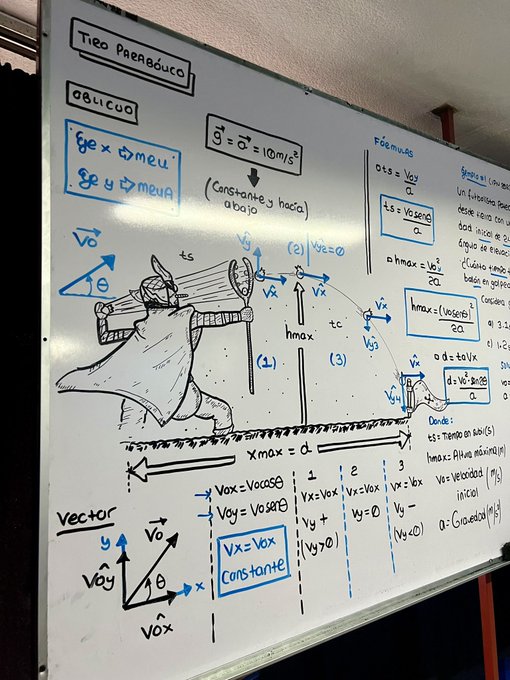 TIRO PARABÓLICO
OBLICUO
Eje x ⇨ MRU
Eje y ⇨ MRUA
g⃗ = a⃗ = 10m/s²
(Constante y hacia abajo)
V₀⃗
θ
ts
Vy
Vx
(2)
Vy2=0
Vx
hmax
tc
(1)
(3)
Vx
Vy3
Vx
Vy4
xmax = d
FÓRMULAS
ts = Voy/a
ts = Vosenθ/a
hmax = Vo²y/2a
hmax = (Vosenθ)²/2a
d = ta Vx
d = Vo²·sen2θ/a
Donde:
ts = Tiempo en subir(s)
hmax = Altura máxima(m)
Vo = Velocidad inicial (m/s)
a = Gravedad (m/s²)
Ejemplo #1
Un futbolista
desde tierra con u
dad inicial de 2
ángulo de eleva
¿Cuánto tiempo
balón en golpea
Considera
a) 3.
c) 1.2
Vector
y
V₀⃗
Voŷ
θ
x
Vox̂
Vox = Vocosθ
Voy = Vosenθ
Vx = Vox
Constante
1
Vx = Vox
Vy +
(Vy>0)
2
Vx = Vox
Vy = 0
3
Vx = Vox
Vy -
(Vy<0)